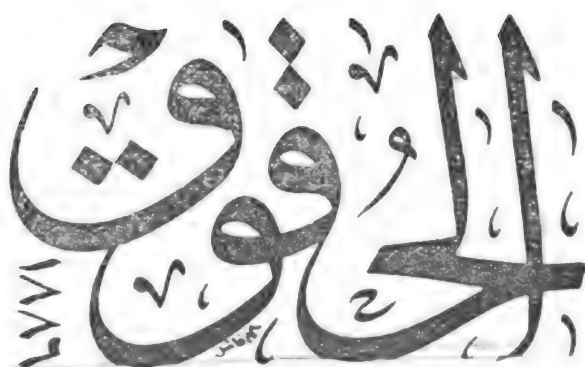 الحُقوقُ